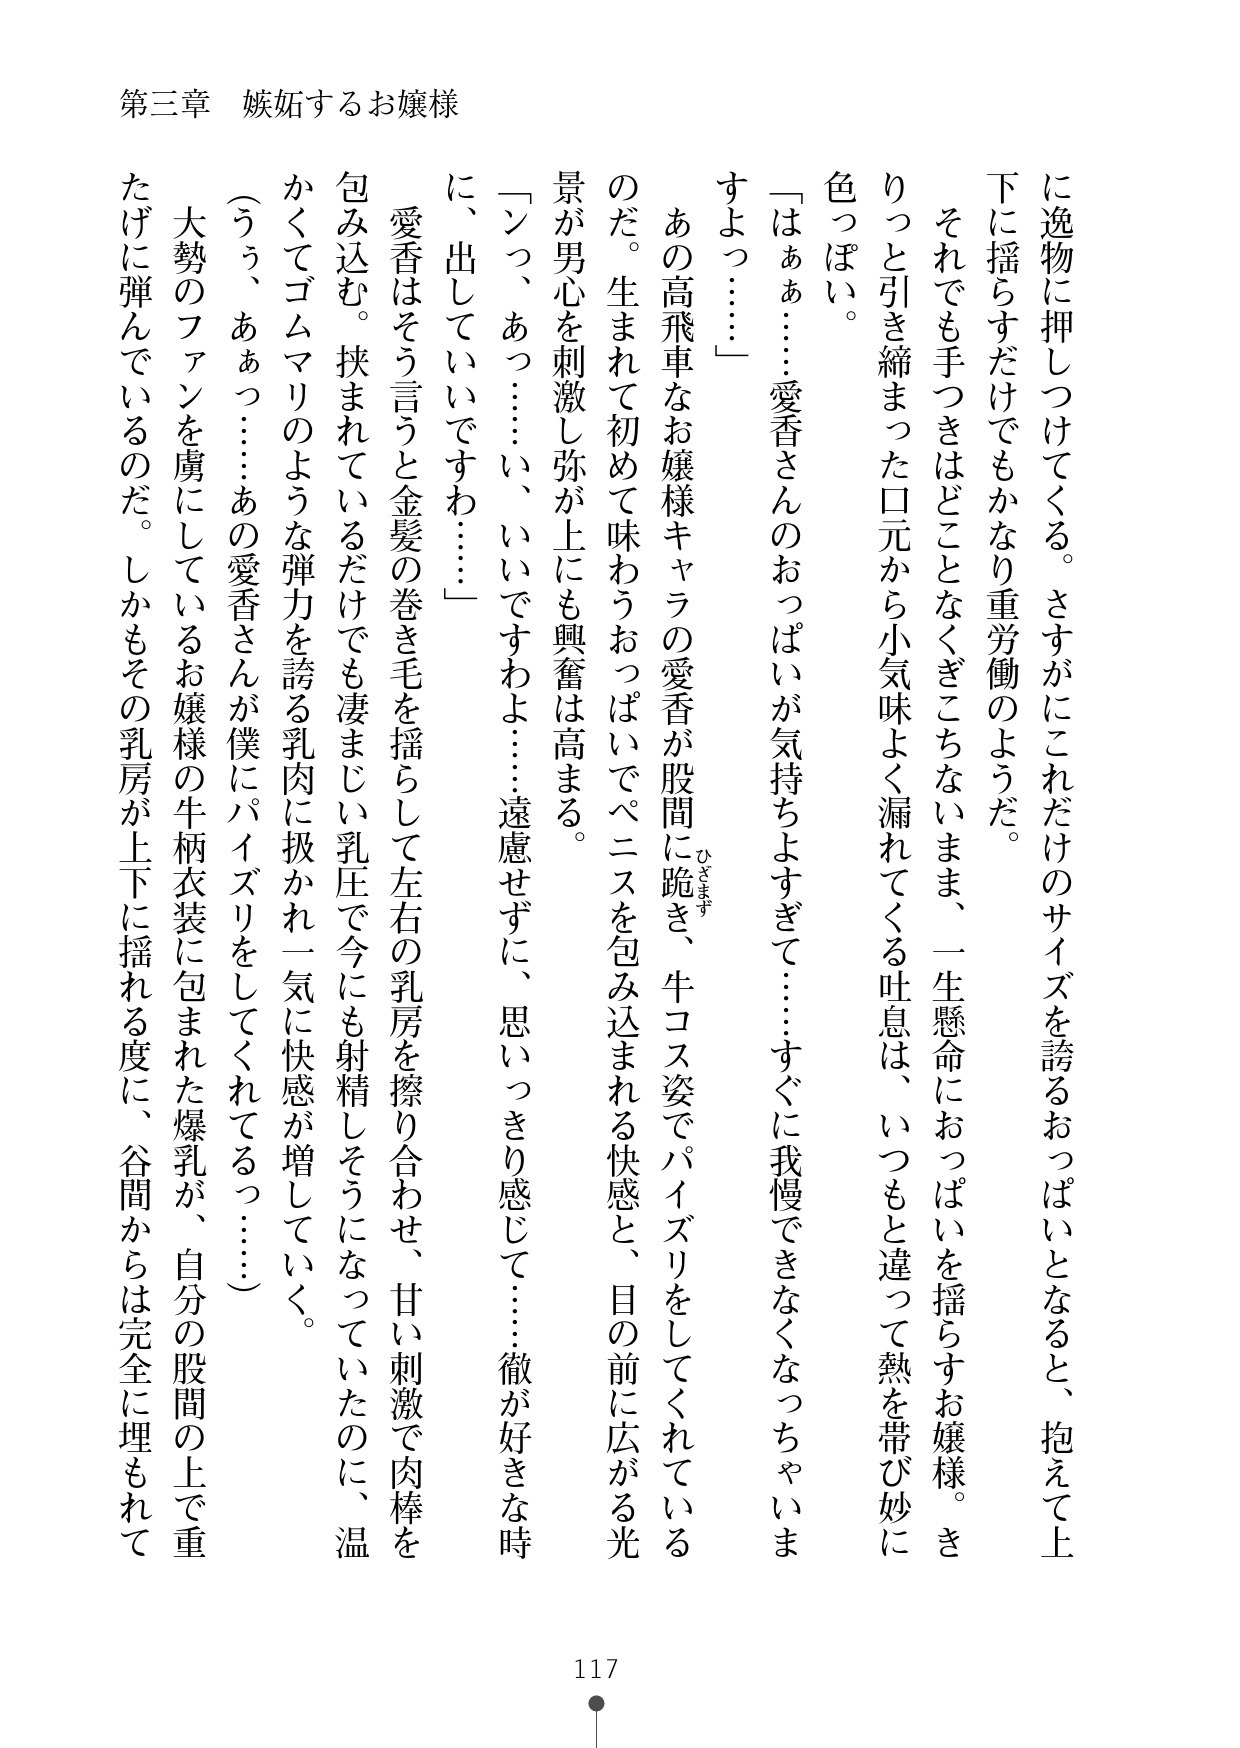 第三章　嫉妬するお嬢様
に逸物に押しつけてくる。さすがにこれだけのサイズを誇るおっぱいとなると、抱えて上
下に揺らすだけでもかなり重労働のようだ。
　それでも手つきはどことなくぎこちないまま、一生懸命におっぱいを揺らすお嬢様。き
りっと引き締まった口元から小気味よく漏れてくる吐息は、いつもと違って熱を帯び妙に
色っぽい。
「はぁぁ……愛香さんのおっぱいが気持ちよすぎて……すぐに我慢できなくなっちゃいま
すよっ……」
　あの高飛車なお嬢様キャラの愛香が股間に跪き、牛コス姿でパイズリをしてくれている
ひざまず
のだ。生まれて初めて味わうおっぱいでペニスを包み込まれる快感と、目の前に広がる光
景が男心を刺激し弥が上にも興奮は高まる。
「ンっ、あっ……い、いいですわよ……遠慮せずに、思いっきり感じて……徹が好きな時
に、出していいですわ……」
　愛香はそう言うと金髪の巻き毛を揺らして左右の乳房を擦り合わせ、甘い刺激で肉棒を
包み込む。挟まれているだけでも凄まじい乳圧で今にも射精しそうになっていたのに、温
かくてゴムマリのような弾力を誇る乳肉に扱かれ一気に快感が増していく。
（うぅ、あぁっ……あの愛香さんが僕にパイズリをしてくれてるっ……）
　大勢のファンを虜にしているお嬢様の牛柄衣装に包まれた爆乳が、自分の股間の上で重
たげに弾んでいるのだ。しかもその乳房が上下に揺れる度に、谷間からは完全に埋もれて
117